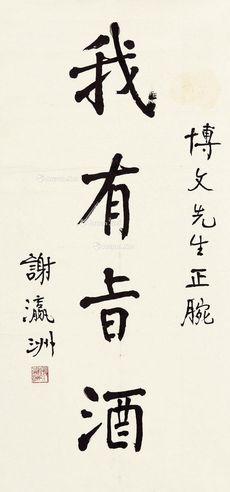 博文先生正腕
我有旨酒
謝瀛洲